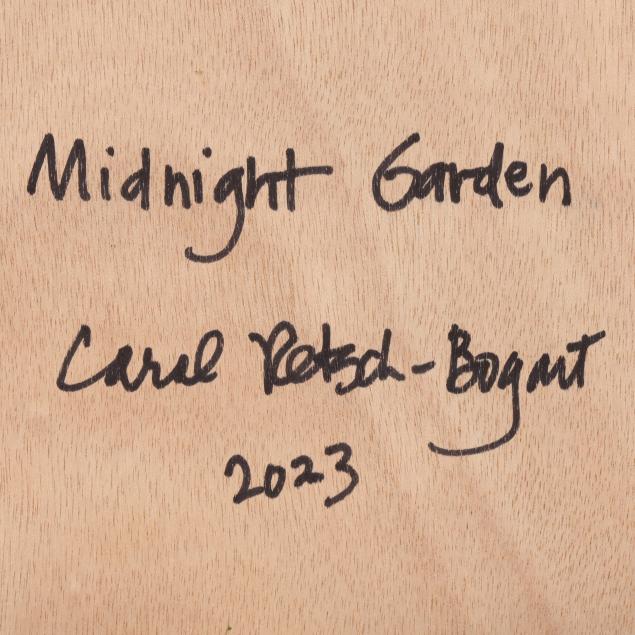 Midnight Garden
Carol Retsch-Bogart
2023